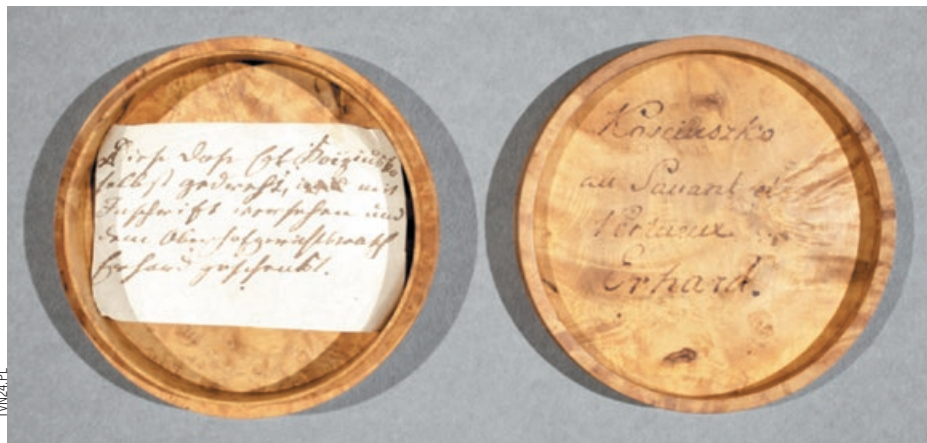 Diese Dose hat Kosciusko
selbst gedreht, und mit
Inschrift versehen und
dem Oberhofgerichtsrath
Erhard geschenkt.
Kosciuszko
au Savant et
Vertueux
Erhard.
TVN24.PL